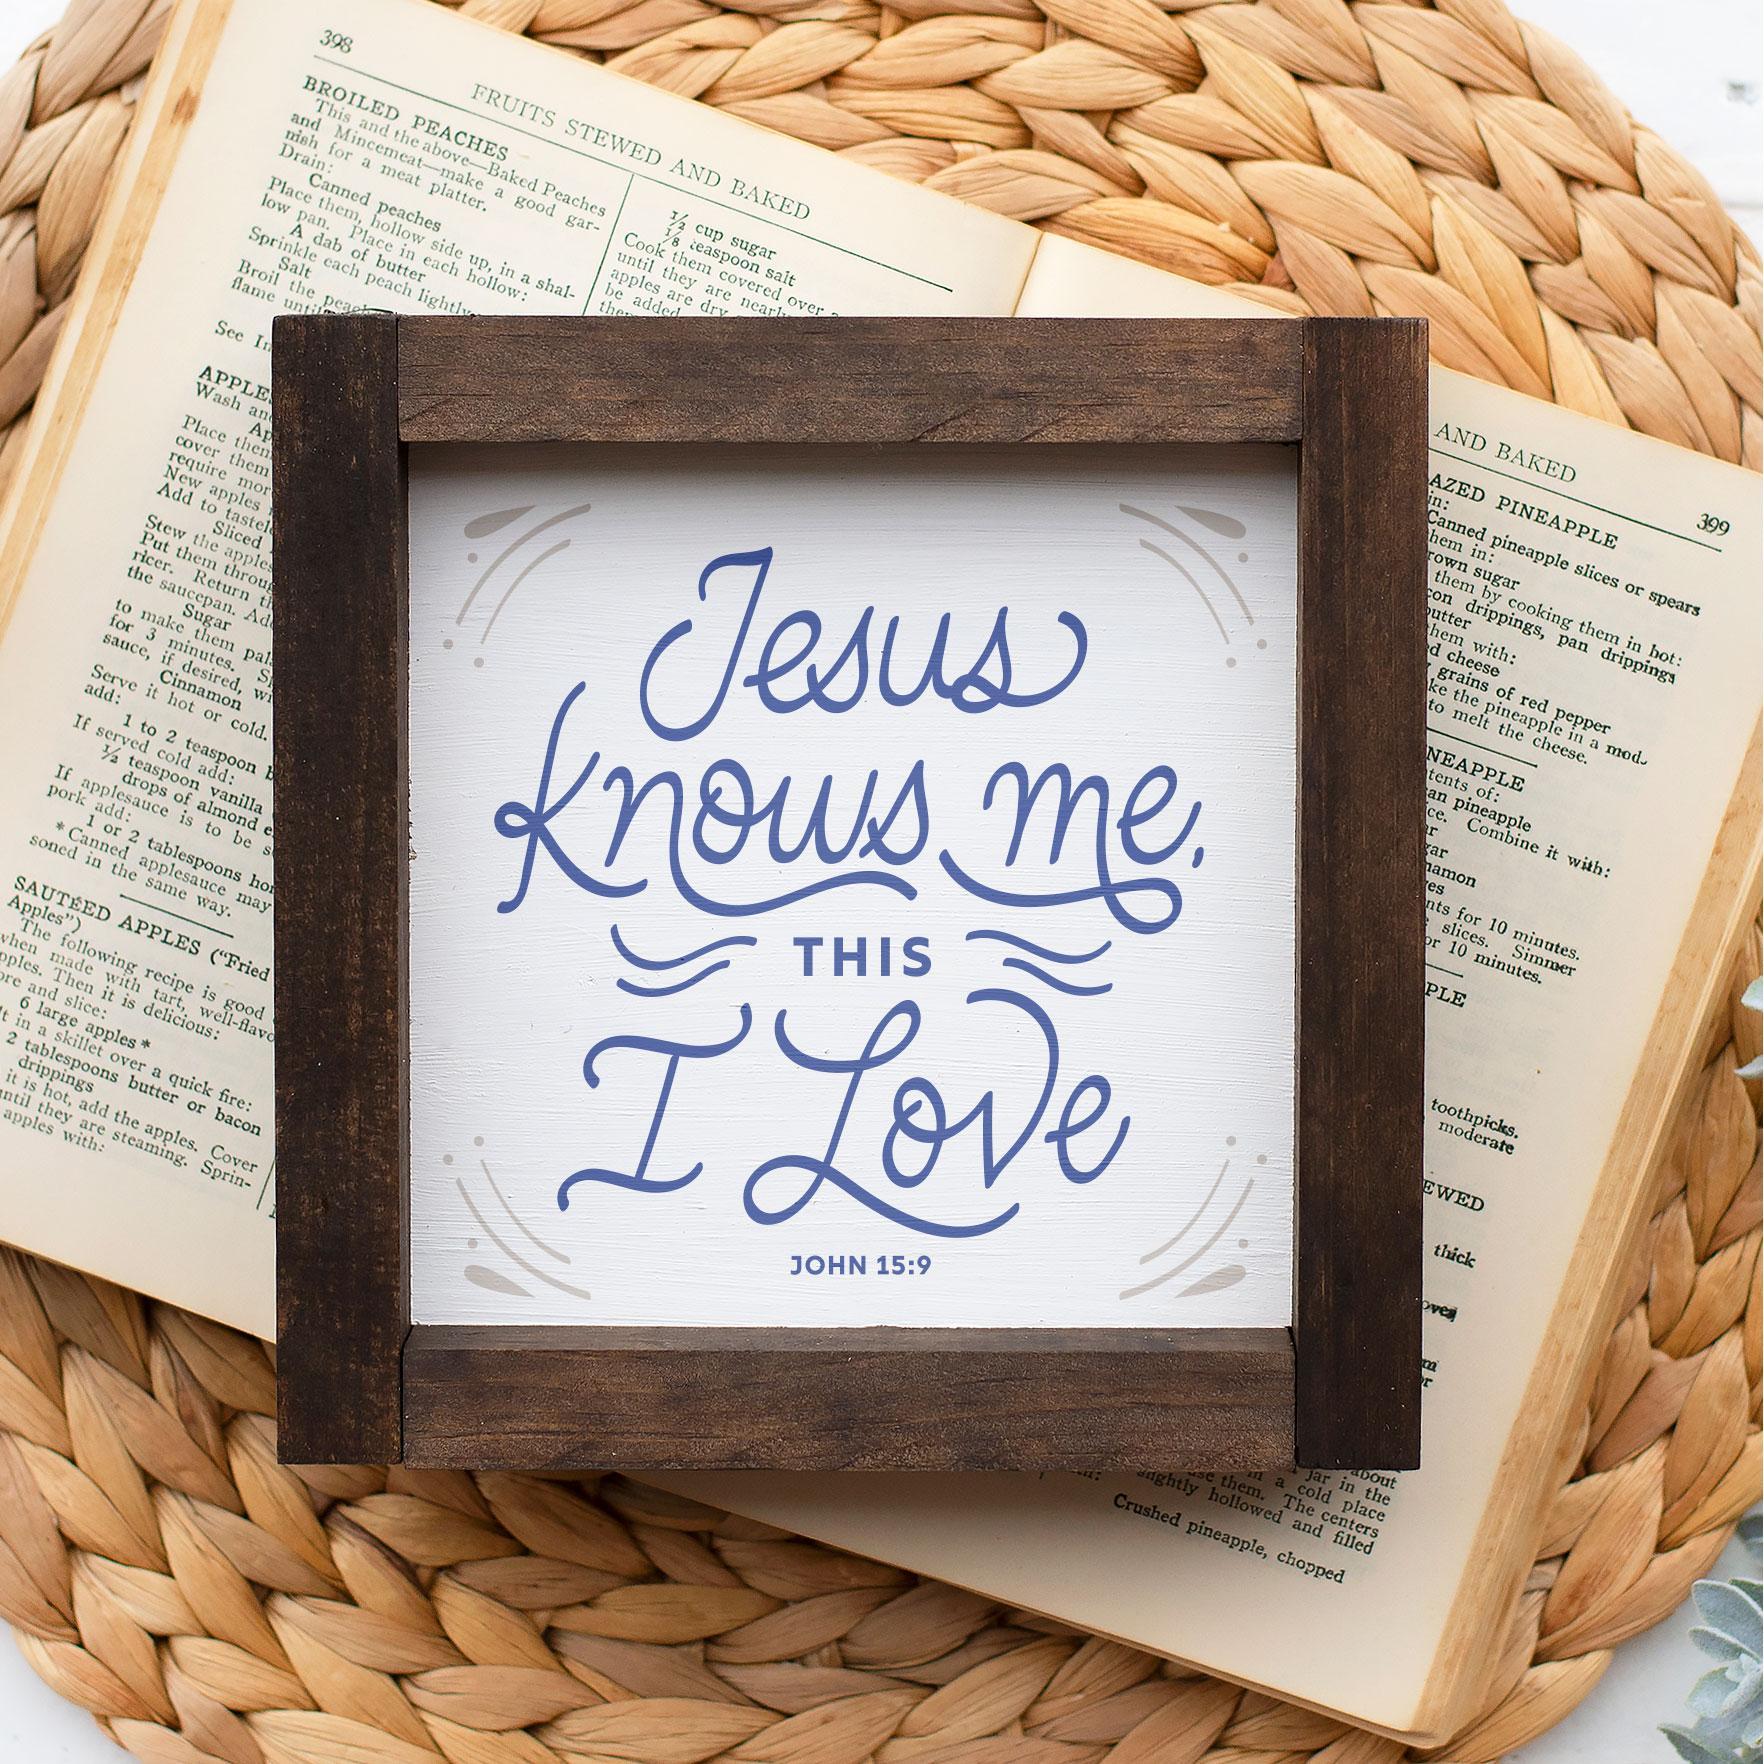 398
FRUITS STEWED AND BAKED
BROILED PEACHES
This and the above—Baked Peaches
and Mincemeat—make a good gar-
nish for a meat platter.
Drain:
Canned peaches
Place them, hollow side up, in a shal-
low pan. Place in each hollow:
A dab of butter
Sprinkle each peach lightly
Salt
Broil the peach
flame until
See In
APPLE
Wash an
Ap
Place them
cover them
require mor
New apples
Add to tastel
Sliced
Stew the apples
Put them throug
ricer. Return th
the saucepan. Add
Sugar
to make them pal
for 3 minutes. S
sauce, if desired, w
Cinnamon
Serve it hot or cold.
add:
1 to 2 teaspoon
If served cold add:
½ teaspoon vanilla
drops of almond e
If applesauce is to be s
pork add:
1 or 2 tablespoons hor
*Canned applesauce may
soned in the same way.
SAUTÉED APPLES ("Fried
Apples")
The following recipe is good
when made with tart, well-flavo
pples. Then it is delicious:
ore and slice:
6 large apples *
t in a skillet over a quick fire:
2 tablespoons butter or bacon
drippings
it is hot, add the apples. Cover
until they are steaming. Sprin-
apples with:
½ cup sugar
⅛ teaspoon salt
Cook them covered over
until they are nearly
apples are dry
be added
then
Jesus
knows me,
THIS
I Love
JOHN 15:9
AND BAKED
399
AZED PINEAPPLE
in:
Canned pineapple slices or spears
hem in:
rown sugar
them by cooking them in hot:
con drippings, pan drippings
utter
hem with:
d cheese
grains of red pepper
ke the pineapple in a mod-
to melt the cheese.
NEAPPLE
tents of:
an pineapple
ce. Combine it with:
gar
namon
ves
nts for 10 minutes.
slices. Simmer
or 10 minutes.
PLE
toothpicks.
moderate
EWED
thick
oves
about
jar in the
use them. in a cold place
slightly hollowed The centers
and filled
Crushed pineapple, chopped